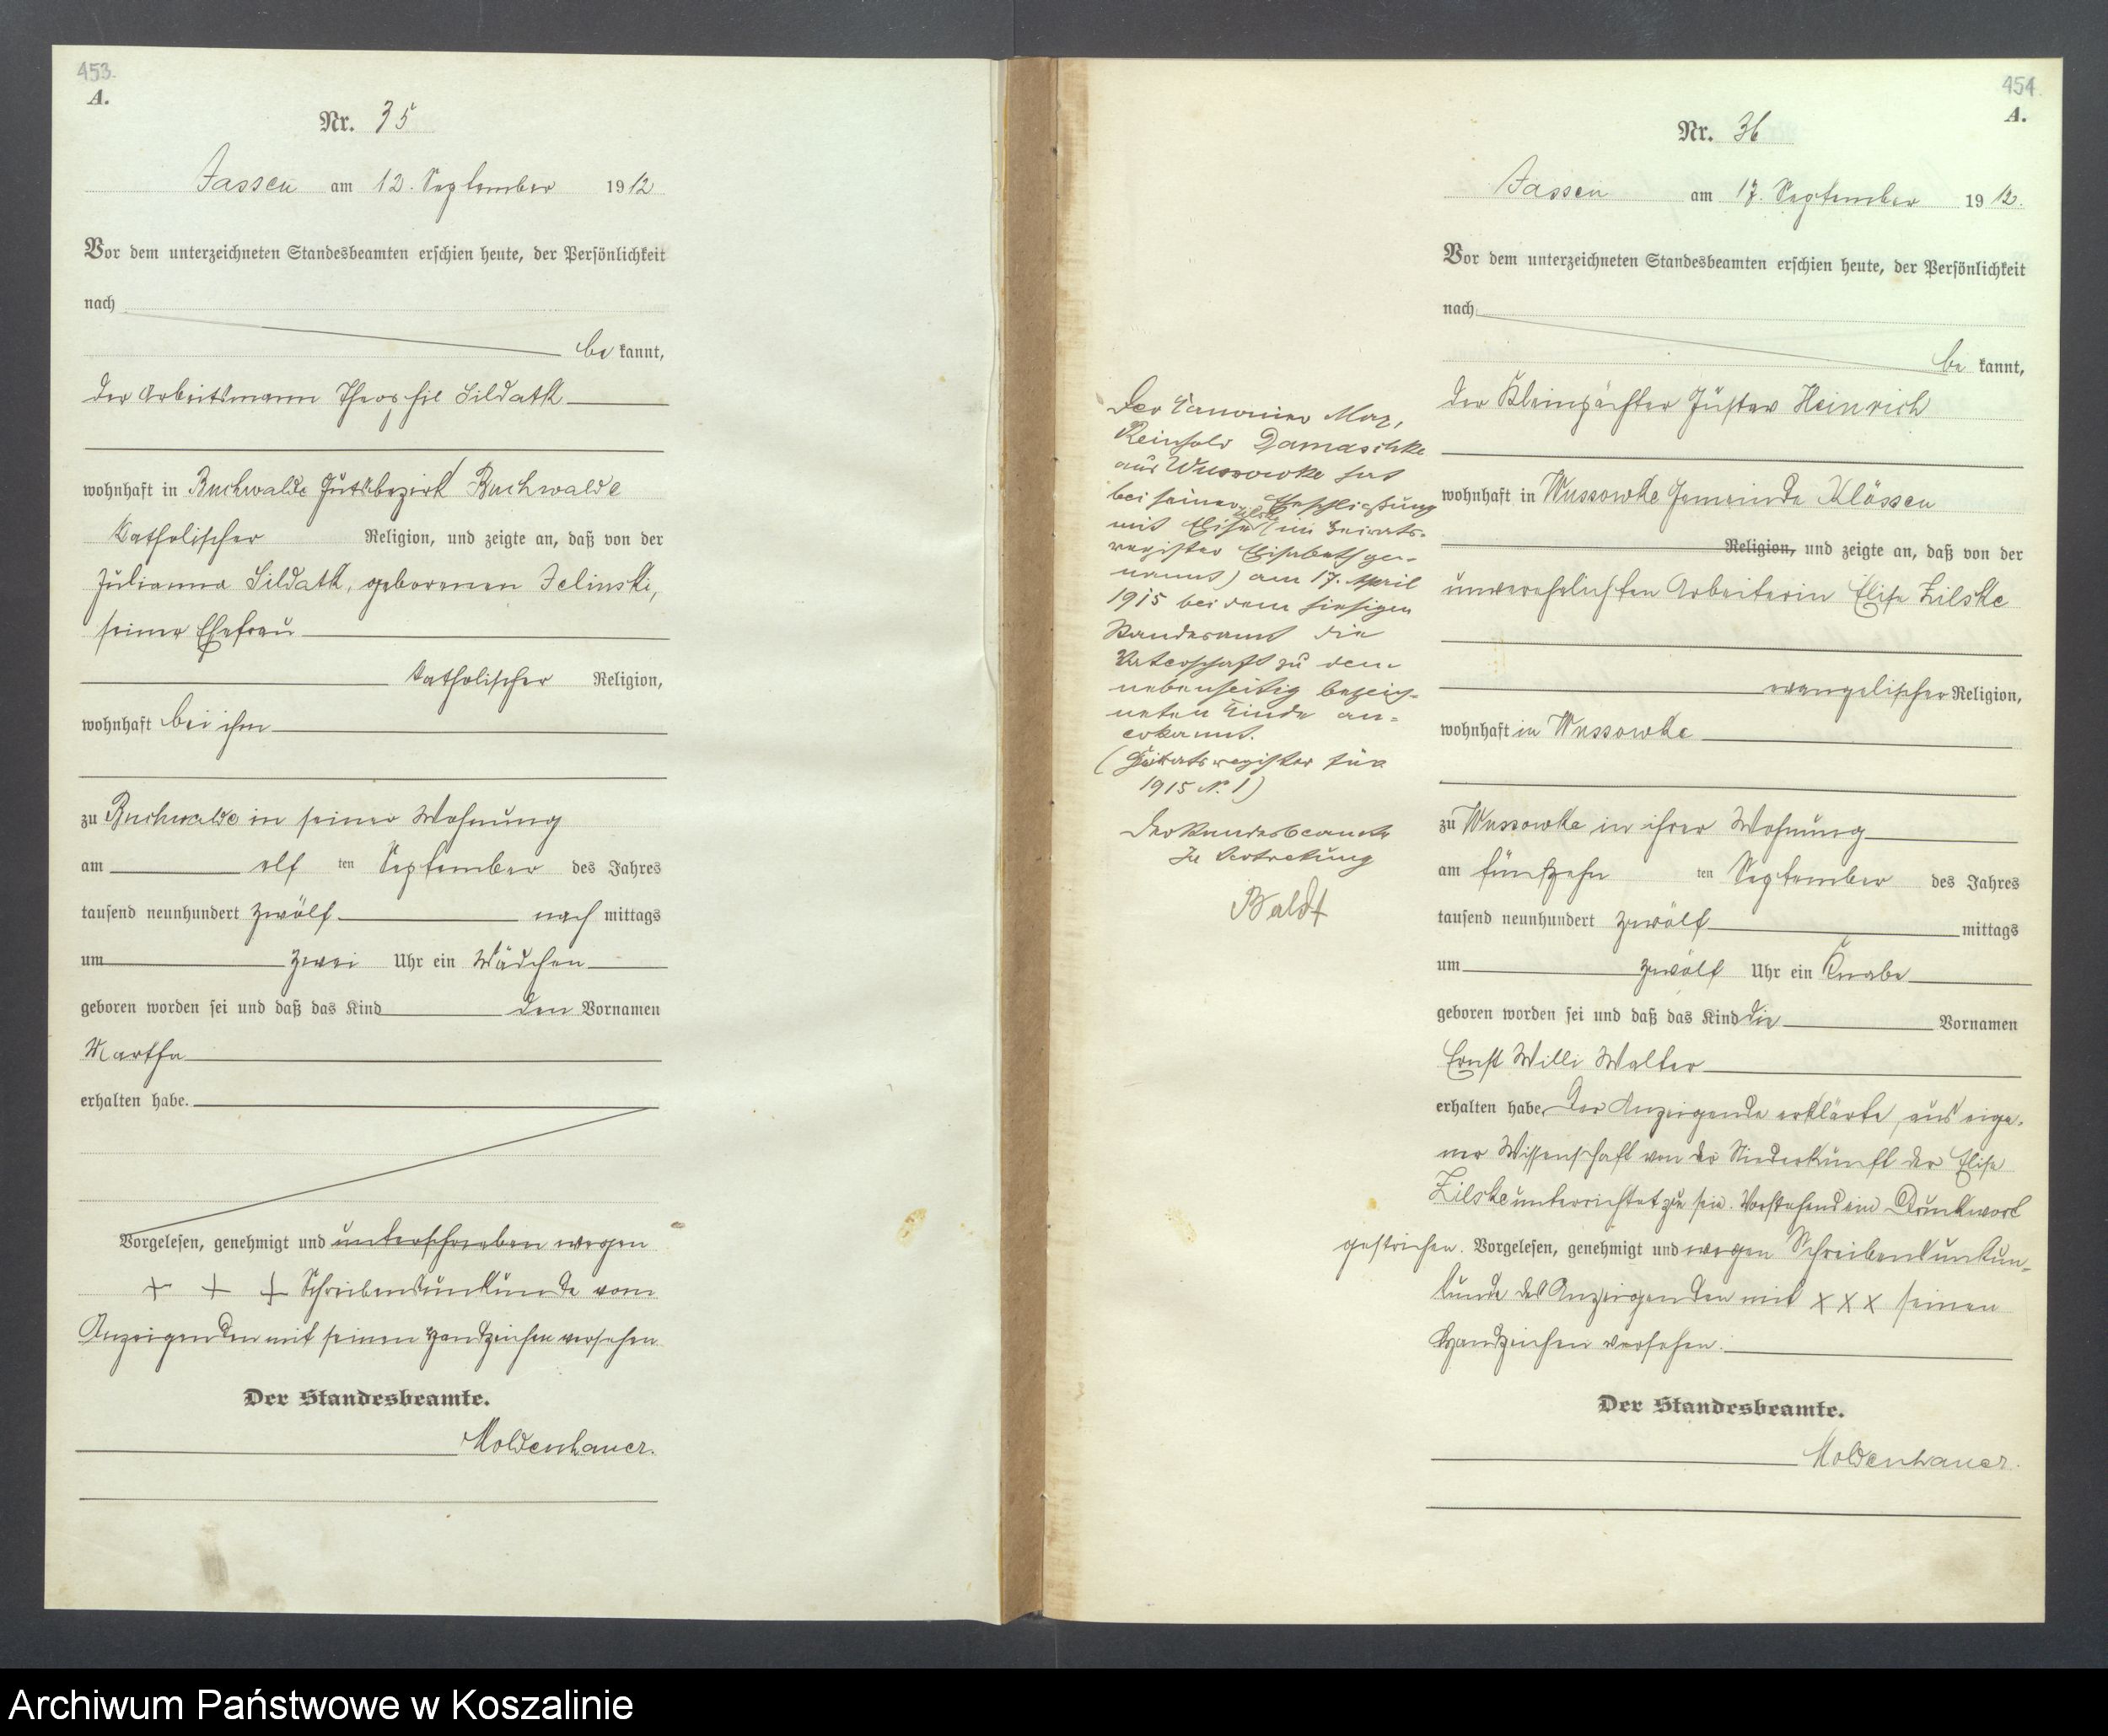 453.
A.
Nr. 35
Jassen am 12. September 1912
Vor dem unterzeichneten Standesbeamten erschien heute, der Persönlichkeit
nach
be kannt,
der Arbeitsmann Theophil Sildatk
wohnhaft in Buchwalde Gutsbezirk Buchwalde
katholischer Religion, und zeigte an, daß von der
Julianna Sildatk, geborenen Jelinski,
seiner Ehefrau
katholischer Religion,
wohnhaft bei ihm
zu Buchwalde in seiner Wohnung
am elf ten September des Jahres
tausend neunhundert zwölf nach mittags
um zwei Uhr ein Mädchen
geboren worden sei und daß das Kind den Vornamen
Martha
erhalten habe.
Vorgelesen, genehmigt und unterschrieben wegen
+ + + Schreibensunkunde vom
Anzeigenden mit seinen Handzeichen versehen
Der Standesbeamte.
Moldenhauer.
454.
A.
Nr. 36
Jassen am 17. September 1912.
Vor dem unterzeichneten Standesbeamten erschien heute, der Persönlichkeit
nach
be kannt,
der Kleinpächter Gustav Heinrich
wohnhaft in Wussowke Gemeinde Klössen
Religion, und zeigte an, daß von der
unverehelichten Arbeiterin Elise Zilske
evangelischer Religion,
wohnhaft in Wussowke
zu Wussowke in ihrer Wohnung
am fünfzehn ten September des Jahres
tausend neunhundert zwölf mittags
um zwölf Uhr ein Knabe
geboren worden sei und daß das Kind die Vornamen
Ernst Willi Walter
erhalten habe. Der Anzeigende erklärte, aus eige-
ner Wissenschaft von der Niederkunft der Elise
Zilske unterrichtet zu sein. Vorstehend ein Druckwort
gestrichen. Vorgelesen, genehmigt und wegen Schreibensunkun-
kunde des Anzeigenden mit x x x seinen
Handzeichen versehen.
Der Standesbeamte.
Moldenhauer.
Der Kanonier Max,
Reinhold Damaschke
aus Wussowke hat
bei seiner Eheschließung
mit Elise Zilske (im Heirats-
register Elisabeth ge-
nannt) am 17. April
1915 bei dem hiesigen
Standesamt die
Vaterschaft zu dem
nebenseitig bezeich-
neten Kinde an-
erkannt.
(Heiratsregister für
1915 N. 1)
Der Standesbeamte
In Vertretung
Baldt
Archiwum Państwowe w Koszalinie